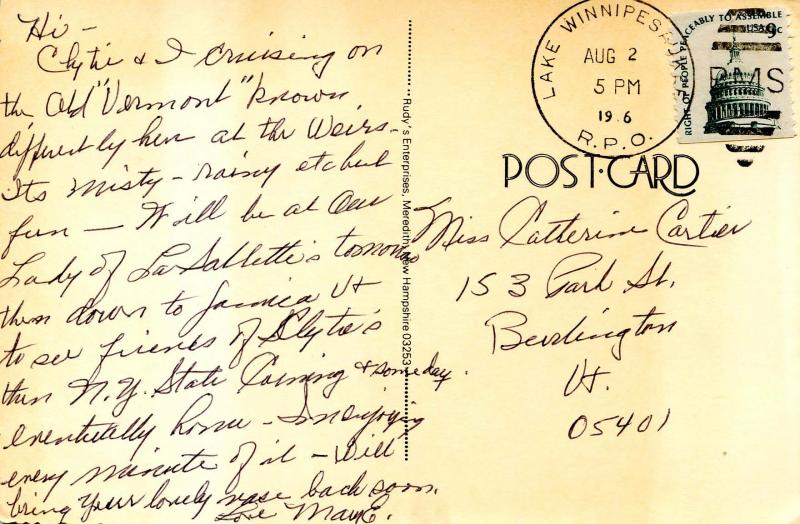 Hi -
Clytie & I cruising on
the Old "Vermont" known
differently here at the Weirs -
Its misty - rainy etc but
fun - Will be at Our
Lady of LaSallette's tomorrow
then down to Jamica Vt
to see friends of Clytie's
then N.Y. State Corning & someday
eventually home - Im enjoying
every minute of it - Will
bring your lovely vase back soon.
Love
Rudy's Enterprises, Meredith, New Hampshire 03253
LAKE WINNIPESAUKEE
AUG 2
5 PM
19 6
R.P.O.
RIGHT OF PEOPLE PEACEABLY TO ASSEMBLE
USA 9c
RMS
POST CARD
Miss Catherine Cartier
153 Park St.
Burlington
Vt.
05401